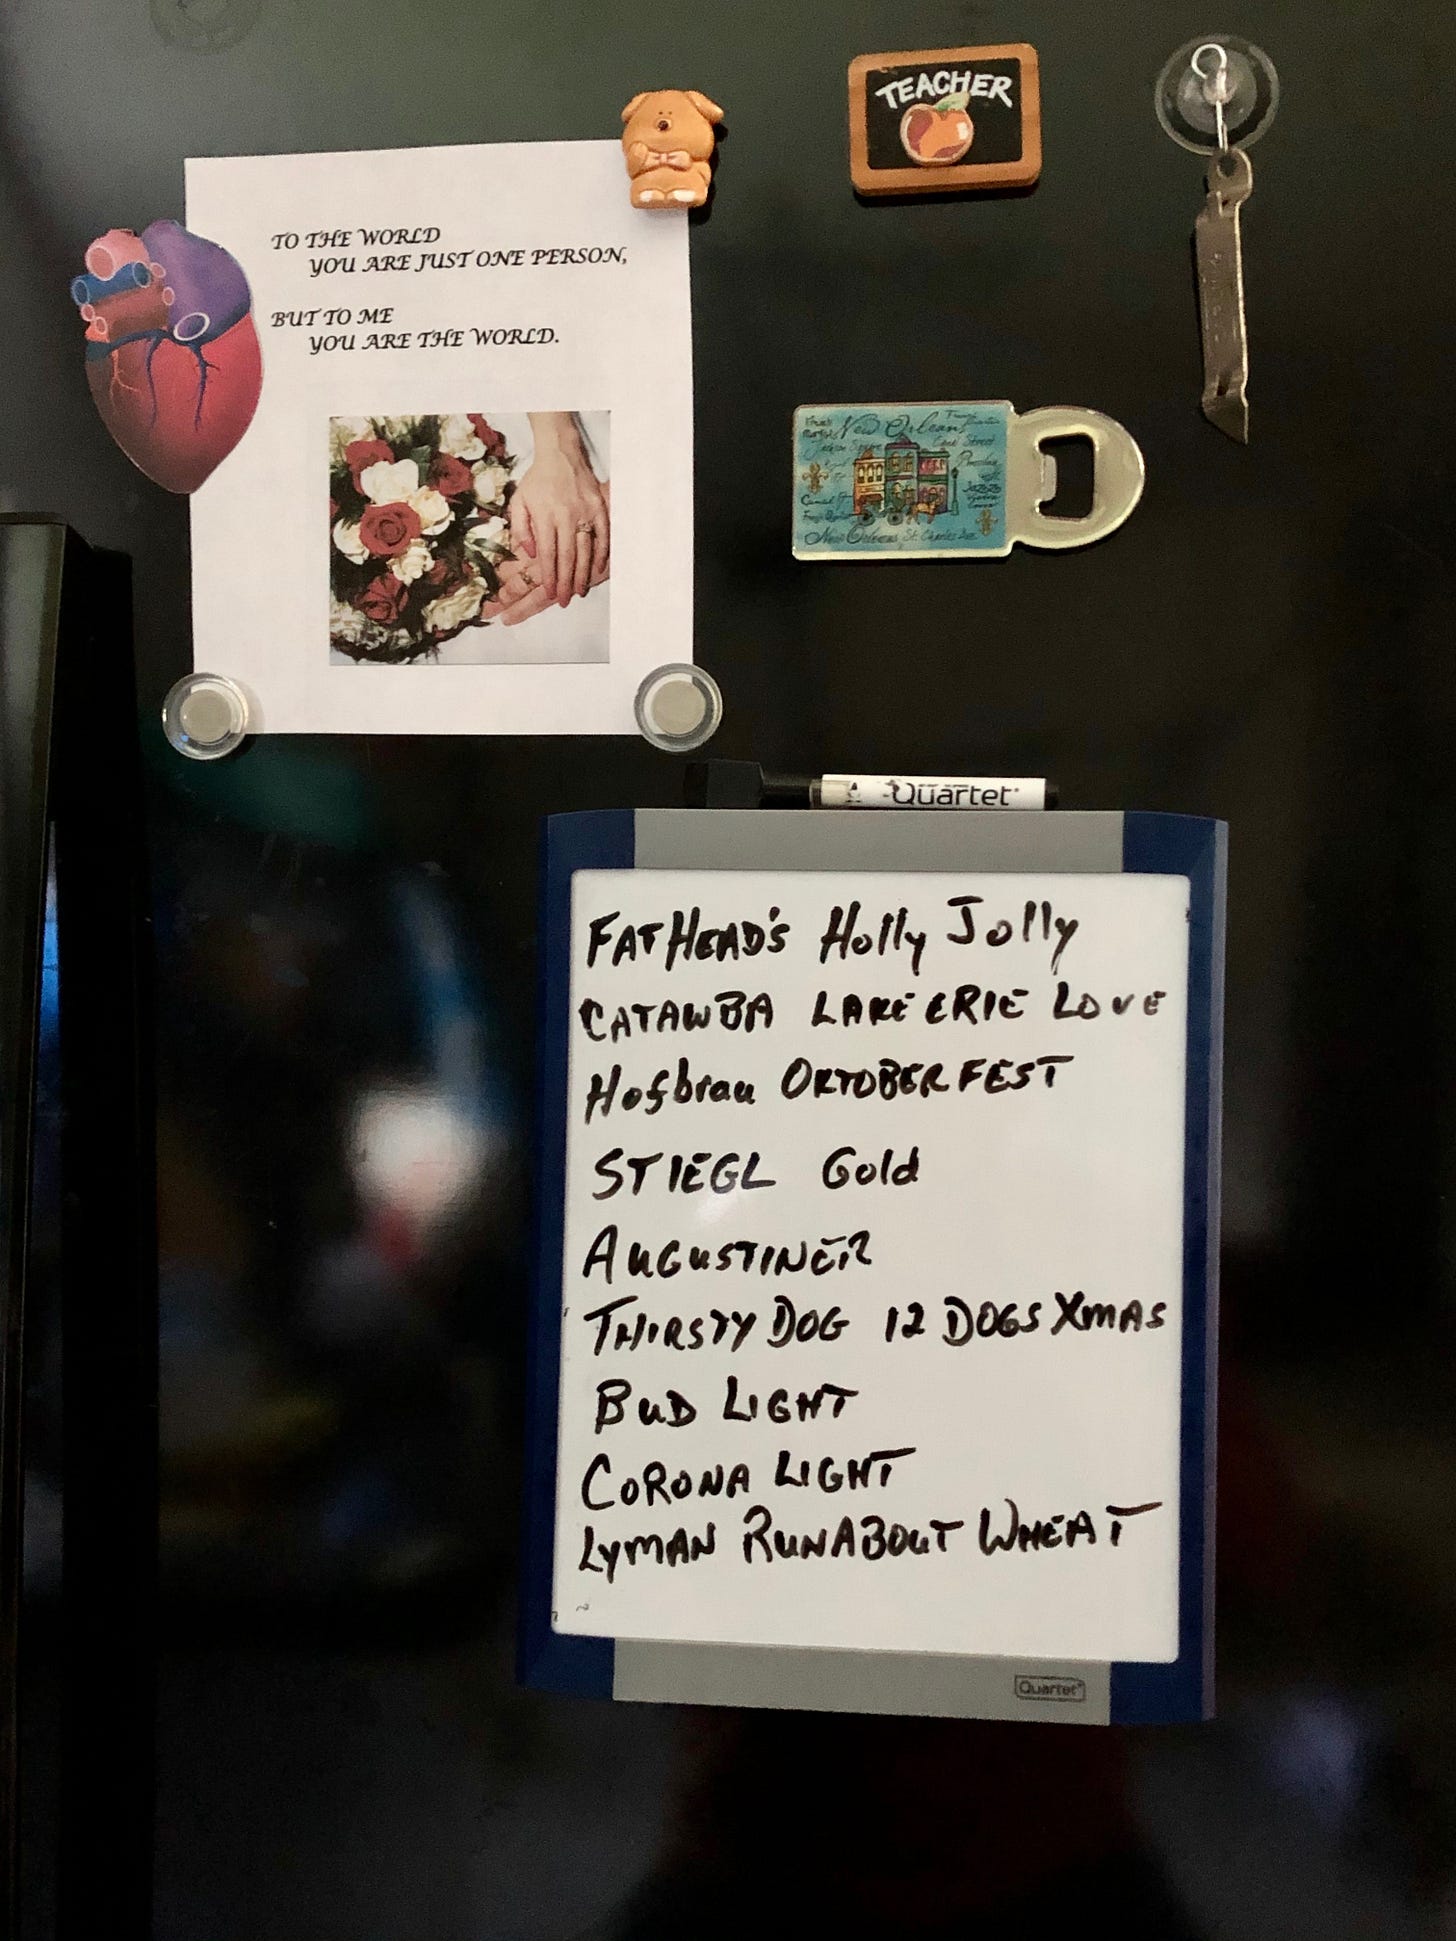 TEACHER
TO THE WORLD
YOU ARE JUST ONE PERSON,
BUT TO ME
YOU ARE THE WORLD.
New Orleans
Canal Street
New Orleans St. Charles Ave.
Quartet
FATHEAD'S Holly Jolly
CATAWBA LAKE ERIE LOVE
Hofbrau OKTOBERFEST
STIEGL Gold
AUGUSTINER
THIRSTY DOG 12 DOGS XMAS
BUD LIGHT
CORONA LIGHT
LYMAN RUNABOUT WHEAT
Quartet